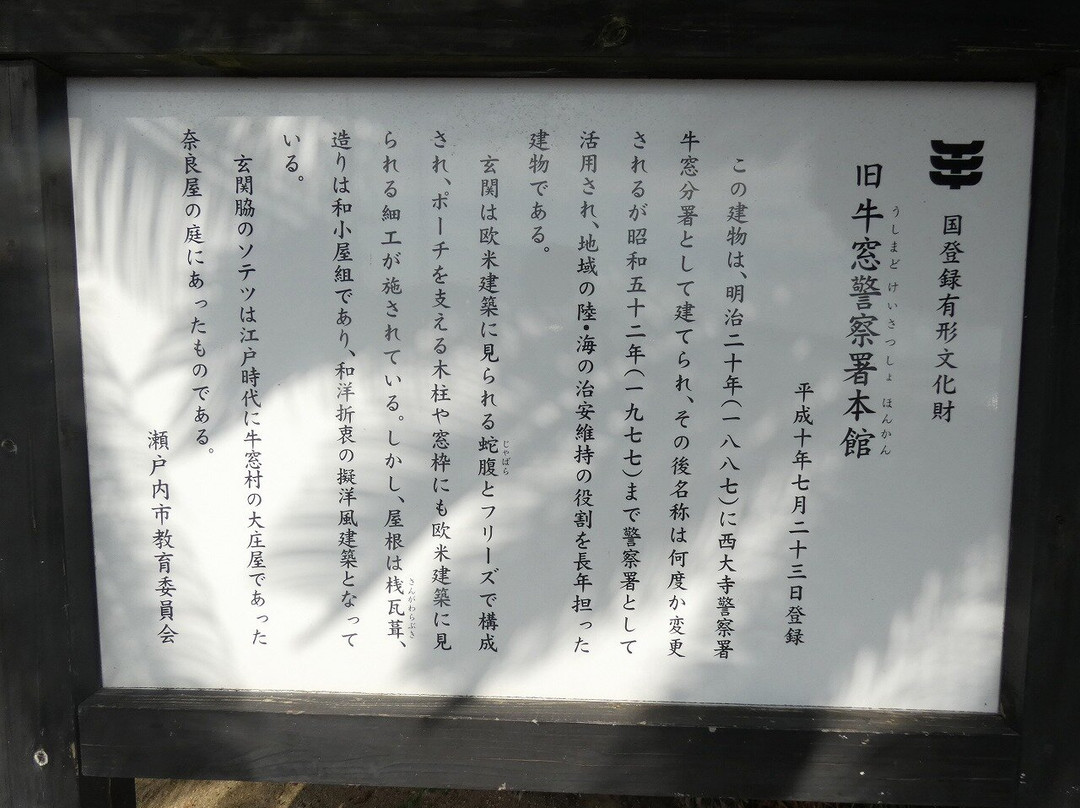 国登録有形文化財
旧牛窓警察署本館
うしまど けいさつしょ ほんかん
平成十年七月二十三日登録
この建物は、明治二十年(一八八七)に西大寺警察署
牛窓分署として建てられ、その後名称は何度か変更
されるが昭和五十二年(一九七七)まで警察署として
活用され、地域の陸・海の治安維持の役割を長年担った
建物である。
玄関は欧米建築に見られる蛇腹とフリーズで構成
じゃばら
され、ポーチを支える木柱や窓枠にも欧米建築に見
られる細工が施されている。しかし、屋根は桟瓦葺、
さんがわらぶき
造りは和小屋組であり、和洋折衷の擬洋風建築となって
いる。
玄関脇のソテツは江戸時代に牛窓村の大庄屋であった
奈良屋の庭にあったものである。
瀬戸内市教育委員会